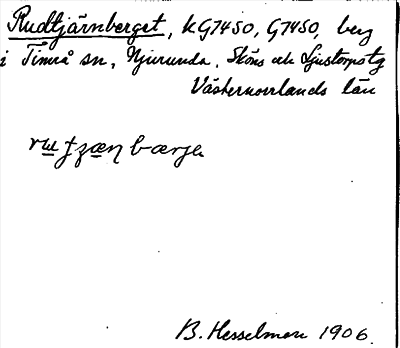 Rudtjärnberget, KG7450, G7450, berg
i Timrå sn, Njurunda, Sköns och Ljustorps tg
Västernorrlands län
bærjə
B. Hesselman 1906.